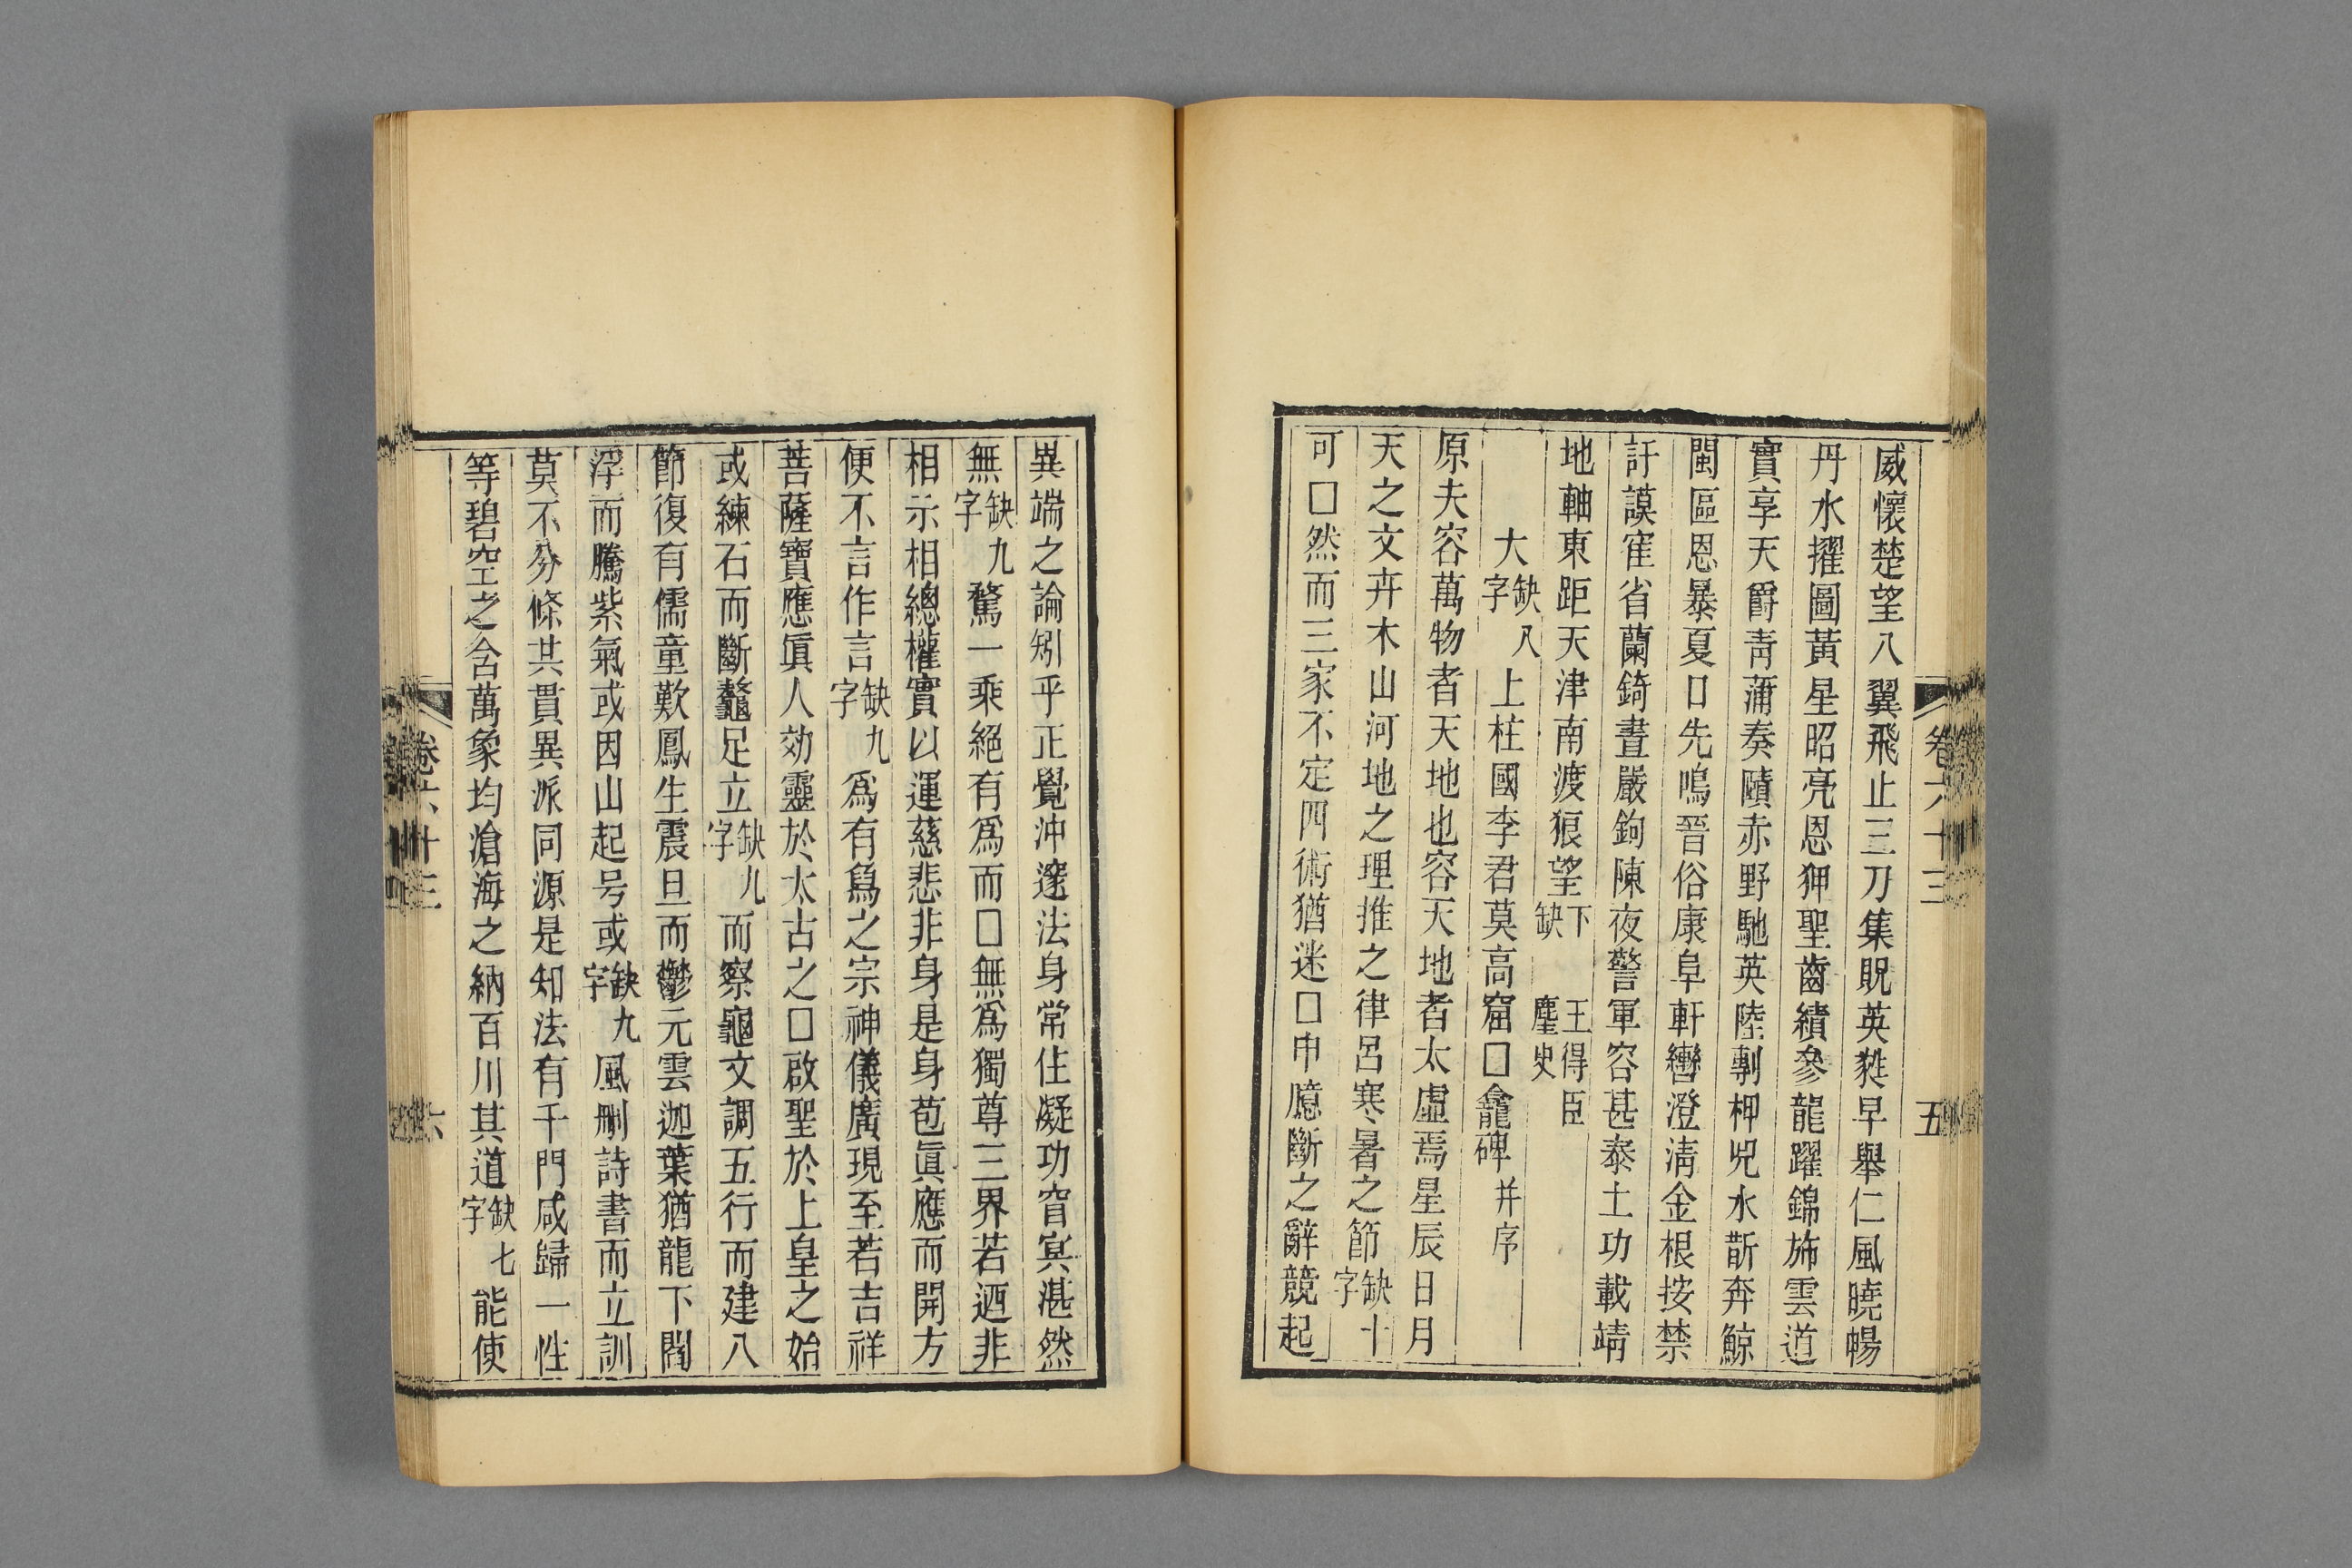 威懷楚望八翼飛止三刀集貺英甤早舉仁風曉暢
丹水擢圖黃星昭亮恩狎聖齒績參龍躍錦斾雲道
實享天爵靑蒲奏賾赤野馳英陸剸柙兕水斮奔鯨
閩區恩暴夏口先鳴晉俗康阜軒轡澄淸金根按禁
訏謨寉省蘭錡晝嚴鉤陳夜警軍容甚泰土功載靖
地軸東距天津南渡狼望下缺 王得臣麈史
大缺八字上柱國李君莫高窟□龕碑并序
原夫容萬物者天地也容天地者太虛焉星辰日月
天之文卉木山河地之理推之律呂寒暑之節缺十字
可□然而三家不定四術猶迷□申臆斷之辭競起
卷六十三 五
異端之論矧乎正覺沖邃法身常住凝功窅冥湛然
無缺九字騖一乘絕有爲而□無爲獨尊三界若迺非
相示相總權實以運慈悲非身是身苞眞應而開方
便不言言作言缺九字爲有爲之宗神儀廣現至若吉祥
菩薩寶應眞人効靈於太古之□啟聖於上皇之始
或練石而斷鼇足立缺九字而察龜文調五行而建八
節復有儒童歎鳳生震旦而鬱元雲迦葉猶龍下閻
浮而騰紫氣或因山起号或缺九字風刪詩書而立訓
莫不分條共貫異派同源是知法有千門咸歸一性
等碧空之含萬象均滄海之納百川其道缺七字能使
卷六十三 六